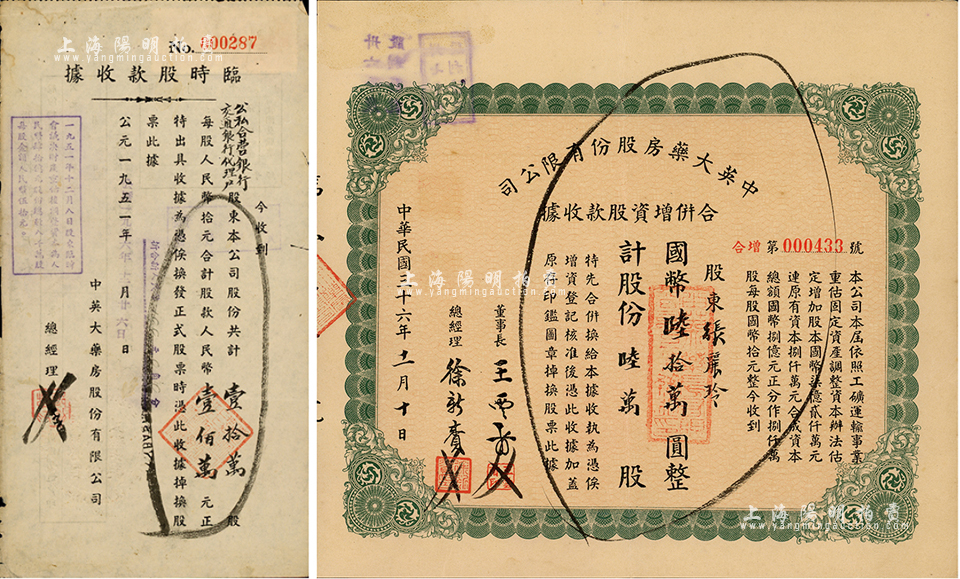 上海陽明拍賣
www.yangmingauction.com
No. 000287
臨時股款收據
今收到
公私合營銀行
交通銀行代理戶
股東本公司股份共計壹拾萬股
每股人民幣拾元合計股款人民幣壹佰萬元正
特出具收據為憑俟換發正式股票時憑此收據掉換股
票此據
公元一九五一年
月十六日
中英大藥房股份有限公司
總經理
一九五一年十二月八日股東臨時
中英大藥房股份有限公司
合併增資股款收據
增合第000433號
本公司本屆依照工礦運輸事業
重估固定資產調整資本辦法估
定增加股本國幣柒億貳仟萬元
連原有資本捌仟萬元合成資本
總額國幣捌億元正分作捌仟萬
股每股國幣拾元整今收到
股東張麗玲
國幣陸拾萬圓整
計股份陸萬股
特先合併換給本據收執為憑俟
增資登記核准後憑此收據加蓋
原存印鑑圖章掉換股票此據
董事長
總經理 徐新賡
中華民國三十六年十一月十日
上海陽明拍賣
www.yangmingauction.com
上海陽明拍賣
www.yangmingauction.com